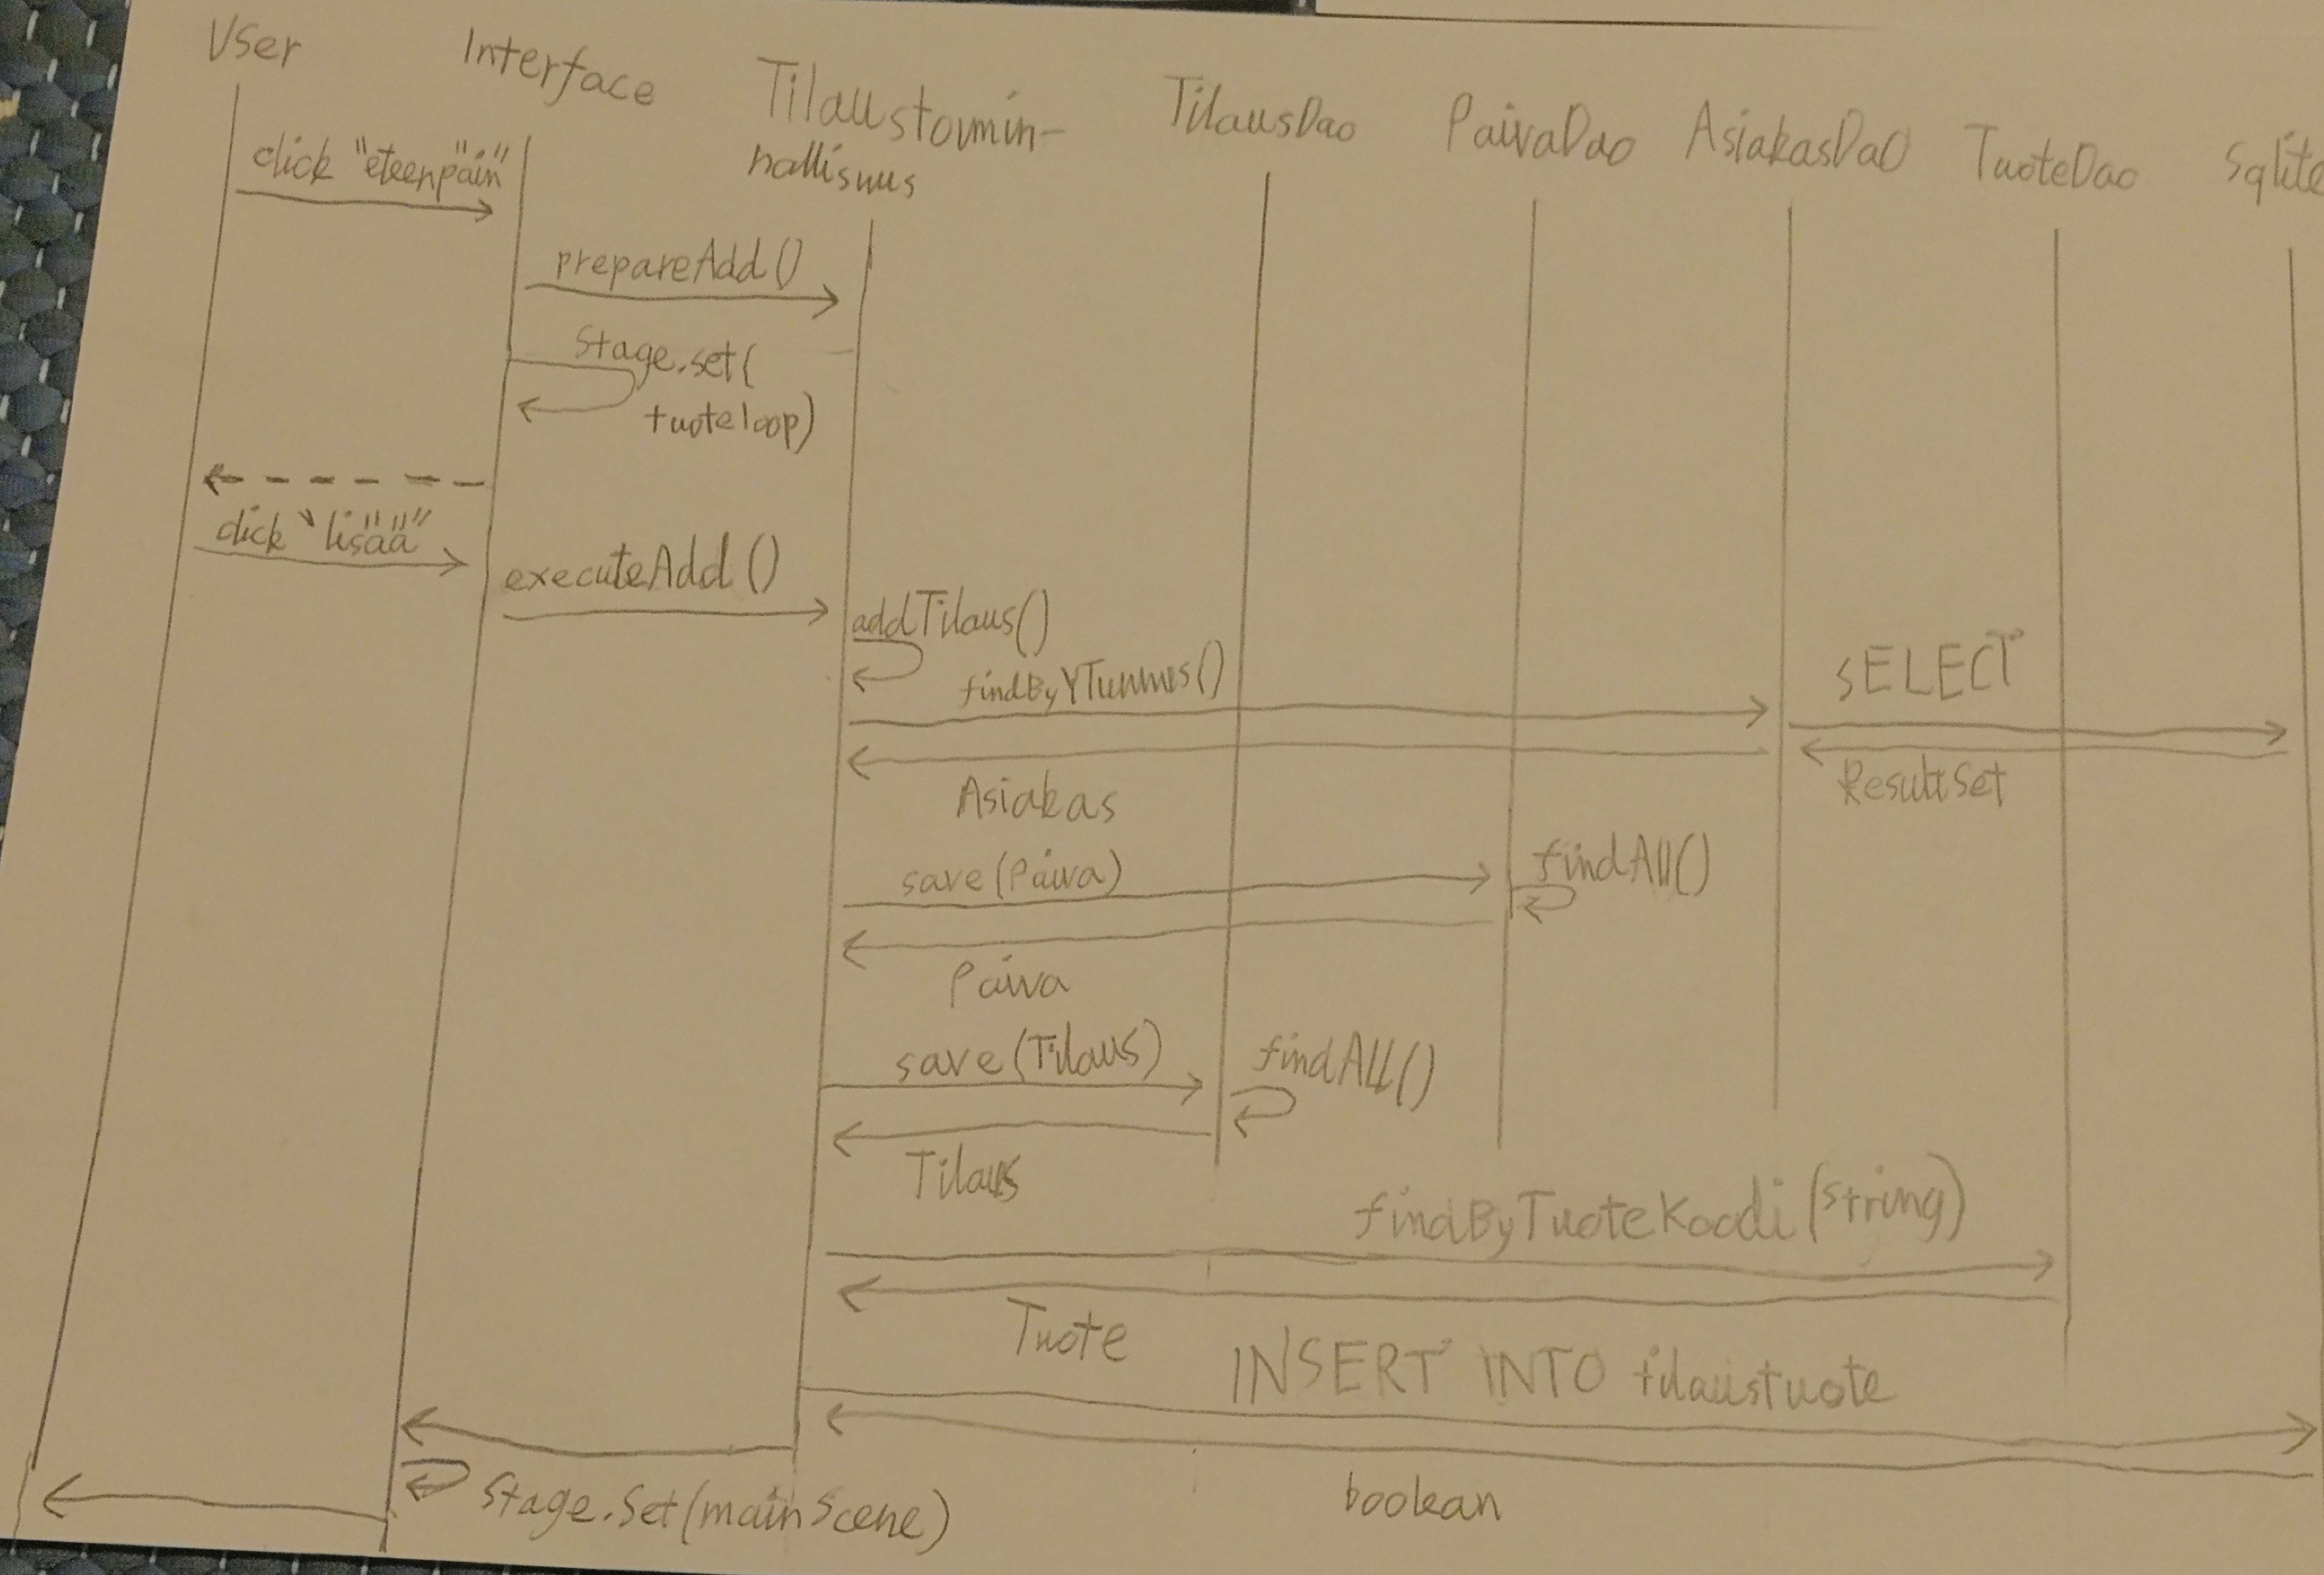 User
Interface
Tilaustoimin-
nallisuus
TilausDao
PaivaDao
AsiakasDaO
TuoteDao
Sqlite
click "eteenpäin"
prepareAdd()
Stage.set(
tuoteloop)
click "lisää"
executeAdd()
addTilaus()
findByYTunnus()
SELECT
ResultSet
Asiakas
save(Päivä)
findAll()
Päivä
save(Tilaus)
findAll()
Tilaus
findByTuoteKoodi(string)
Tuote
INSERT INTO tilaustuote
boolean
Stage.Set(mainScene)